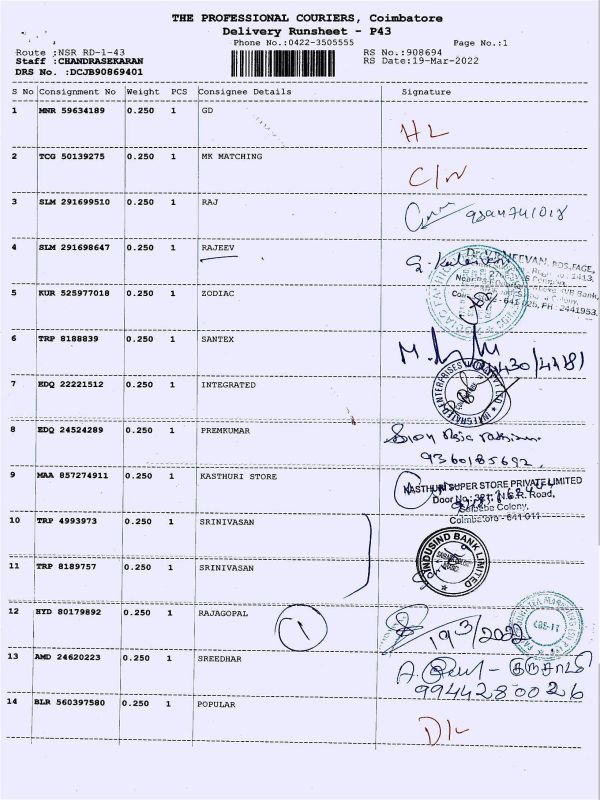 THE PROFESSIONAL COURIERS, Coimbatore
Delivery Runsheet - P43
Phone No.:0422-3505555 Page No.:1
Route :NSR RD-1-43 RS No.:908694
Staff :CHANDRASEKARAN RS Date:19-Mar-2022
DRS No. :DCJB90869401
S No Consignment No Weight PCS Consignee Details Signature
1 MNR 59634189 0.250 1 GD
HL
2 TCG 50139275 0.250 1 MK MATCHING
C/N
3 SLM 291699510 0.250 1 RAJ
4 SLM 291698647 0.250 1 RAJEEV
5 KUR 525977018 0.250 1 ZODIAC
6 TRP 8188839 0.250 1 SANTEX
7 EDQ 22221512 0.250 1 INTEGRATED
8 EDQ 24524289 0.250 1 PREMKUMAR
9360185692
9 MAA 857274911 0.250 1 KASTHURI STORE
KASTHURI SUPER STORE PRIVATE LIMITED
Door No: 381, N.S.R. Road,
Saibaba Colony,
Coimbatore - 641 011
10 TRP 4993973 0.250 1 SRINIVASAN
INDUSIND BANK LIMITED
11 TRP 8189757 0.250 1 SRINIVASAN
12 HYD 80179892 0.250 1 RAJAGOPAL
1
19/3/2022
13 AMD 24620223 0.250 1 SREEDHAR
9944280026
14 BLR 560397580 0.250 1 POPULAR
D/L